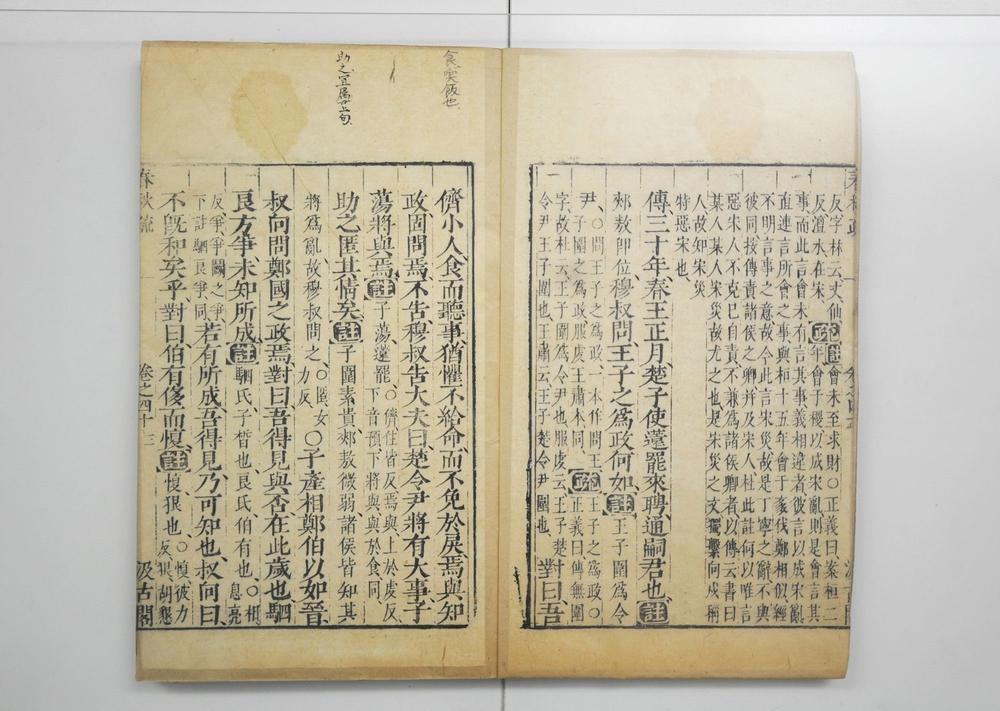 反字林云丈仙
反澶水在宋
疏
註會未至求財○正義曰案桓二
年會于稷以成宋亂則是會言其
事而此言會未有言其事義相違者彼言以成宋亂
直連言所會之事與桓十五年會于袲伐鄭相似經
不明言事之意故今此言宋災故是丁寧之辭不與
彼同按傳責諸侯之卿并及宋人杜此註何以唯言
惡宋人不克已自責不兼為諸侯卿者以傳云書曰
某人某人宋災故尤之也是宋災之文獨繫向戌稱
人故知宋災
特惡宋也
傳三十年春王正月楚子使薳罷來聘通嗣君也註
郟敖即位穆叔問王子之爲政何如註王子圍爲令
尹○問王子之爲政一本作問王
子圍之爲政服虔王肅本同
疏
王子之爲政○
正義曰傳無圍
字故杜云王子圍爲令尹也服虔云王子楚
令尹王子圍也王肅云王子楚令尹圍也
對曰吾
食宐飯也
助之宜屬上句
儕小人食而聽事猶懼不給命而不免於戾焉與知
政固問焉不告穆叔告大夫曰楚令尹將有大事子
蕩將與焉註子蕩薳罷○儕仕皆反焉與上於虔反
下音預下將與與於食同
助之匿其情矣註子圍素貴郟敖微弱諸侯皆知其
將爲亂故穆叔問之○匿女
力反
○子產相鄭伯以如晉
叔向問鄭國之政焉對曰吾得見與否在此歲也駟
良方爭未知所成註駟氏子晳也良氏伯有也○相息亮
反爭爭鬭之爭
下註駟良爭同
若有所成吾得見乃可知也叔向曰
不既和矣乎對曰伯有侈而愎註愎狠也○愎彼力
反狠胡懇
春秋疏
卷之四十
三
汲古閣